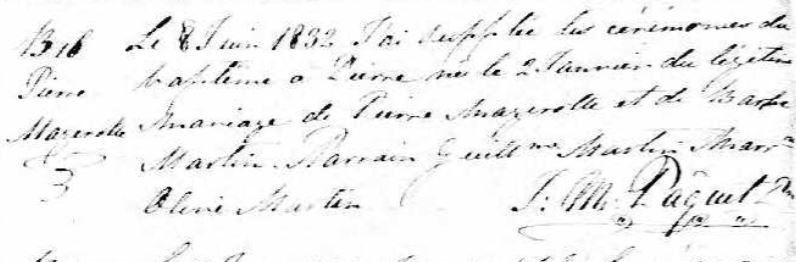 B 16 Le 8 Juin 1832 J'ai supplée les cérémonies du
Pierre baptême a Pierre né le 2 Janvier du légitime
Mazerolle mariage de Pierre Mazerolle et de Barbe
Martin. Parrain Guillme Martin Marrne
3 Olive Martin J: M: Paquet Ptre